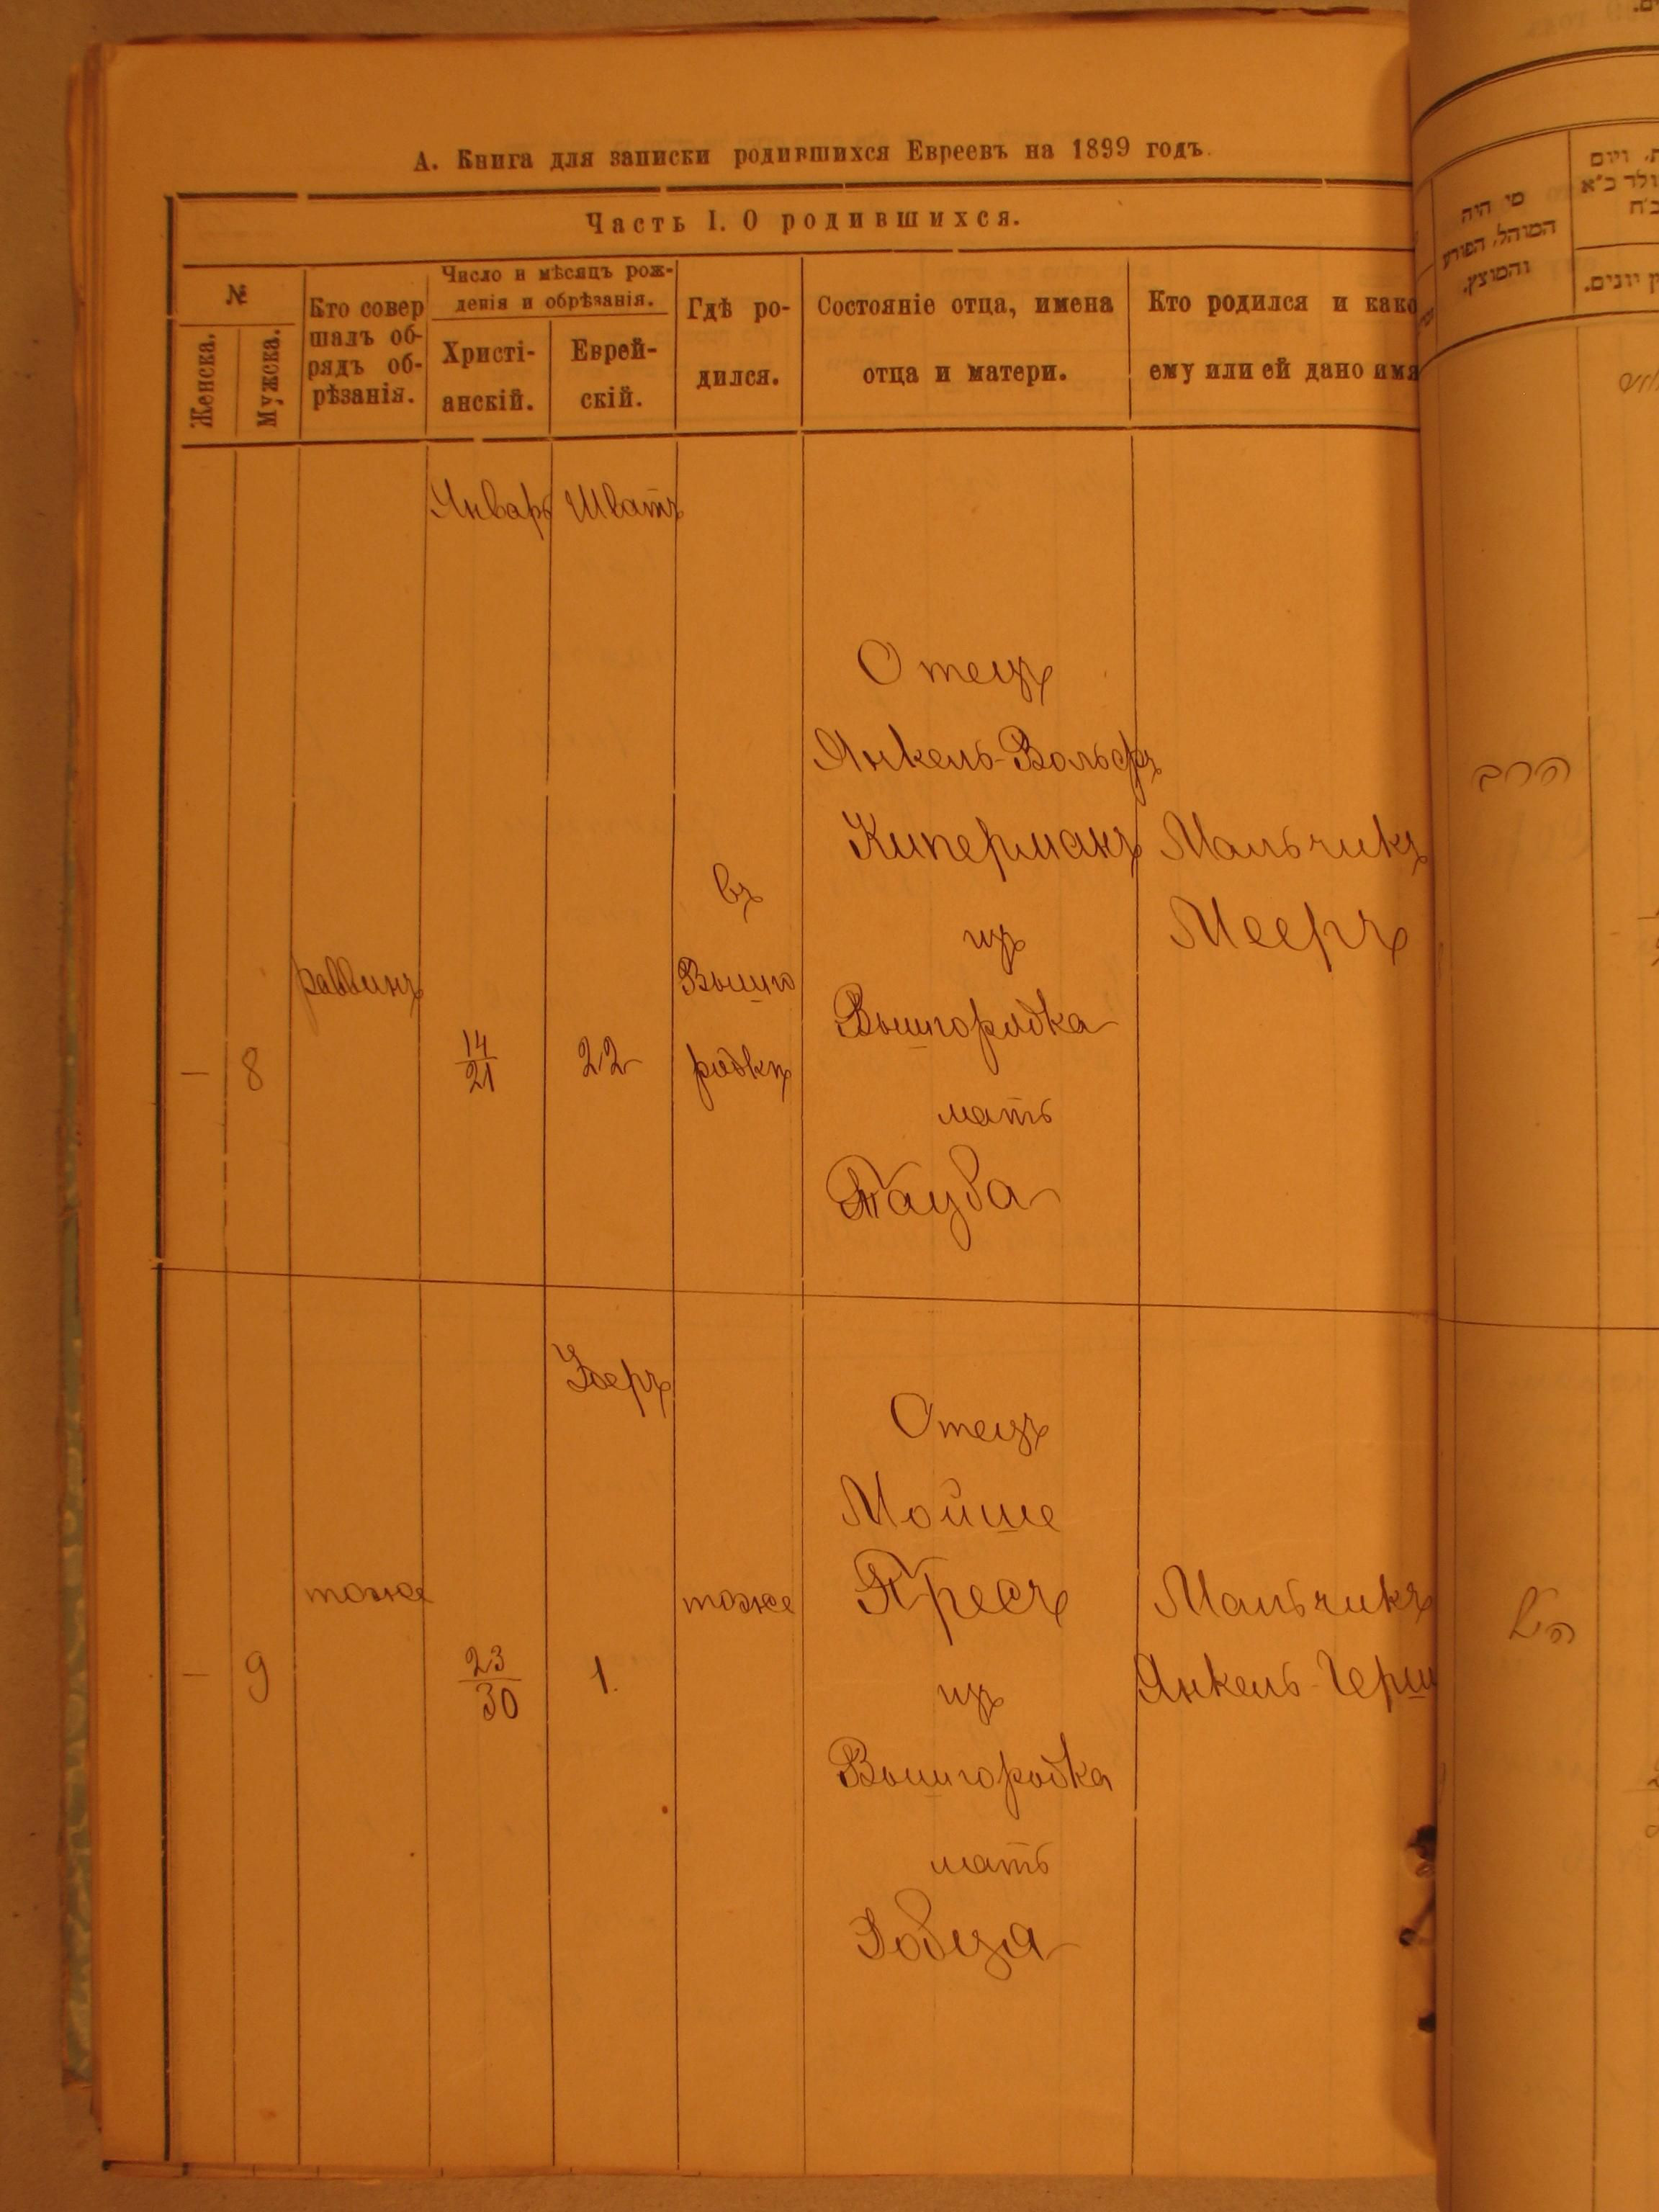 А. Книга для записки родившихся Евреевъ на 1899 годъ.
Часть I. О родившихся.
№
Женска.
Мужска.
Кто совер
шалъ об-
рядъ об-
рѣзанія.
Число и мѣсяцъ рож-
денія и обрѣзанія.
Христі-
анскій.
Еврей-
скій.
Гдѣ ро-
дился.
Состояніе отца, имена
отца и матери.
Кто родился и како
ему или ей дано имя
Январь
Шватъ
—
8
раввинъ
14
21
22
въ
Вышго
родкѣ
Отецъ
Янкель-Вольфъ
Киперманъ
изъ
Вышгородка
мать
Тауба
Мальчикъ
Мееръ
Адеръ
—
9
тоже
23
30
1.
тоже
Отецъ
Мойше
Пресъ
изъ
Вышгородка
мать
Мальчикъ
Янкель-Герш
מי היה
המוהל, הפורע
והמוצץ.
ויום
יונים.
הרב
הנ"ל